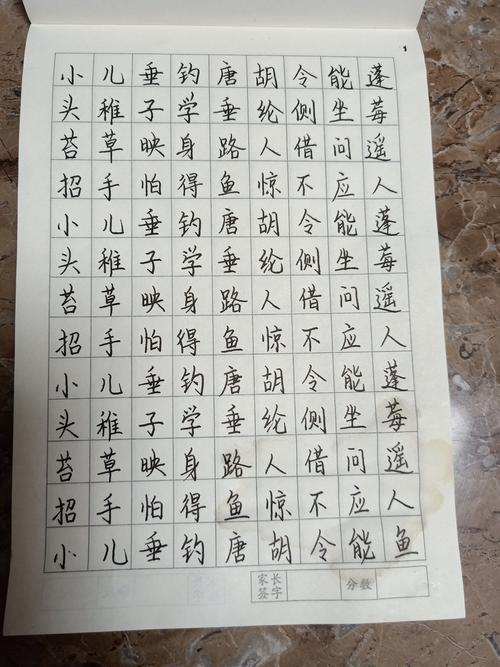 1
小儿垂钓唐胡令能蓬
头稚子学垂纶侧坐莓
苔草映身路人借问遥
招手怕得鱼惊不应人
小儿垂钓唐胡令能蓬
头稚子学垂纶侧坐莓
苔草映身路人借问遥
招手怕得鱼惊不应人
小儿垂钓唐胡令能蓬
头稚子学垂纶侧坐莓
苔草映身路人借问遥
招手怕得鱼惊不应人
小儿垂钓唐胡令能鱼
家长签字 分数